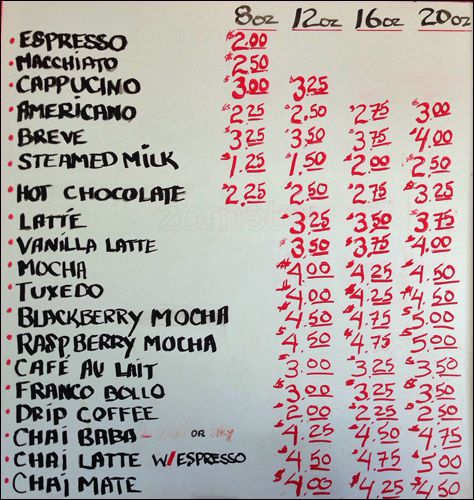 8oz 12oz 16oz 20oz
• ESPRESSO $2.00
• MACCHIATO $2.50
• CAPPUCINO $3.00 $3.25
• AMERICANO $2.25 $2.50 $2.75 $3.00
• BREVE $3.25 $3.50 $3.75 $4.00
• STEAMED MILK $1.25 $1.50 $2.00 $2.50
• HOT CHOCOLATE $2.25 $2.50 $2.75 $3.25
• LATTE $3.25 $3.50 $3.75
• VANILLA LATTE $3.50 $3.75 $4.00
• MOCHA $4.00 $4.25 $4.50
• TUXEDO $4.00 $4.25 $4.50
• BLACKBERRY MOCHA $4.50 $4.75 $5.00
• RASPBERRY MOCHA $4.50 $4.75 $5.00
• CAFÉ AU LAIT $3.00 $3.25 $3.50
• FRANCO BOLLO $3.00 $3.25 $3.50
• DRIP COFFEE $2.00 $2.25 $2.50
• CHAI BABA OR $4.25 $4.50 $4.75
• CHAI LATTE W/ESPRESSO $4.50 $4.75 $5.00
• CHAI MATE $4.00 $4.25 $4.50